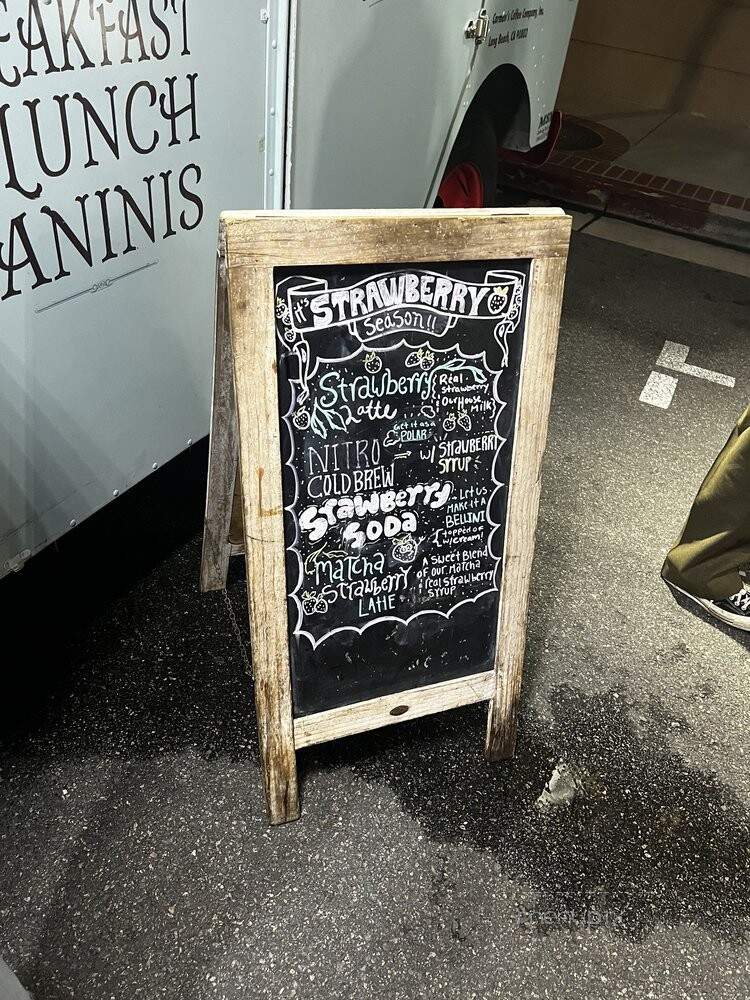 EAKFAST
LUNCH
ANINIS
Carmen's Coffee Company, Inc.
Long Beach, CA 90802
it's STRAWBERRY
Season!!
Strawberry
Latte
Real
strawberry
Our House
Milk
Get it as a
POLAR
NITRO
COLD BREW
w/ STRAUBERRY
SYRUP
Strawberry
SODA
Let us
MAKE it A
BELLINI
topped off
w/cream!
Matcha
Strawberry
LATTE
A Sweet Blend
of our Matcha
real strawberry
SYRUP